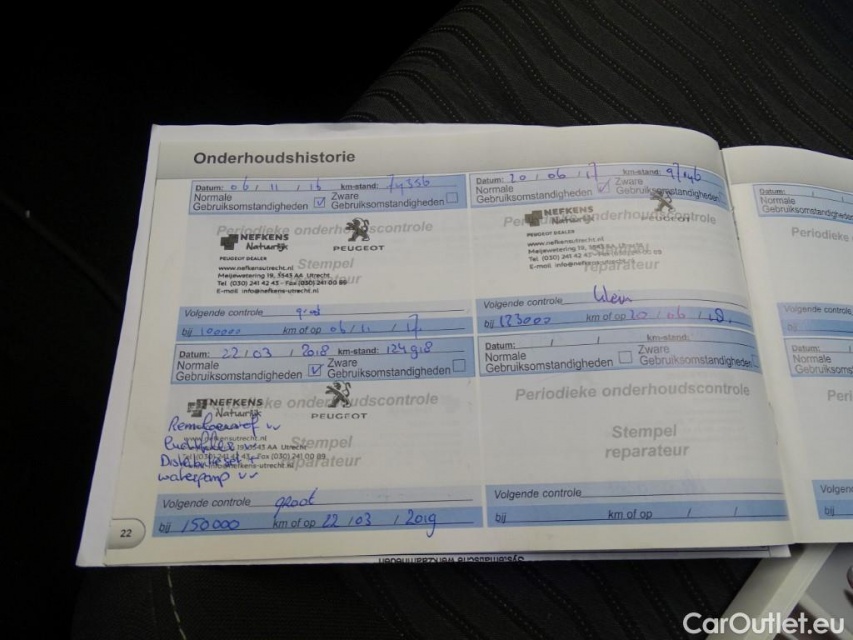 Onderhoudshistorie
Datum: 06 / 11 / 16 km-stand: 74556
Normale Gebruiksomstandigheden ✓ Zware Gebruiksomstandigheden
Periodieke onderhoudscontrole
NEFKENS
Natuurlijk
PEUGEOT
PEUGEOT DEALER
Stempel
reparateur
www.nefkensutrecht.nl
Meijewetering 19, 3543 AA Utrecht
Tel. (030) 241 42 43 - Fax (030) 241 00 89
E-mail: info@nefkens-utrecht.nl
Volgende controle groot
bij 100000 km of op 06 / 11 / 17
Datum: 20 / 06 / 17 km-stand: 97146
Normale Gebruiksomstandigheden ✓ Zware Gebruiksomstandigheden
Periodieke onderhoudscontrole
NEFKENS
Natuurlijk
PEUGEOT
PEUGEOT DEALER
Stempel
reparateur
www.nefkensutrecht.nl
Meijewetering 19, 3543 AA Utrecht
Tel. (030) 241 42 43 - Fax (030) 241 00 89
E-mail: info@nefkens-utrecht.nl
Volgende controle klein
bij 123000 km of op 20 / 06 / 18.
Datum: 22 / 03 / 2018 km-stand: 124918
Normale Gebruiksomstandigheden ✓ Zware Gebruiksomstandigheden
Periodieke onderhoudscontrole
NEFKENS
Natuurlijk
PEUGEOT
Stempel
reparateur
Remvloeistof vv
waterpomp vv
Volgende controle groot
bij 150000 km of op 22 / 03 / 2019
Datum: / / km-stand:
Normale Gebruiksomstandigheden Zware Gebruiksomstandigheden
Periodieke onderhoudscontrole
Stempel
reparateur
Volgende controle
bij km of op / /
22
Datum: /
Normale
Gebruiksomstandigheden
Periodieke
Volgende controle
bij
Datum: /
Normale
Gebruiksomstandighe
Peri
Volgen
bij
CarOutlet.eu